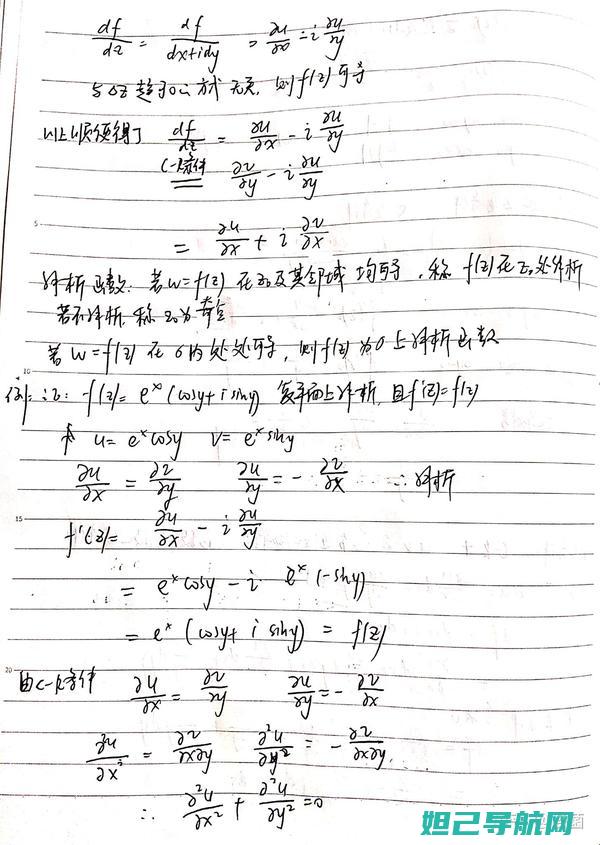 df/dz = df/(dx+idy) = ∂u/∂x - i ∂u/∂y
与Δz趋于0的方式无关,则f(z)可导
以上顺便得了 df/dz = ∂u/∂x - i ∂u/∂y
C-R条件 ∂v/∂y - i ∂u/∂y
5
= ∂u/∂x + i ∂v/∂x
解析函数:若w=f(z)在z₀及其邻域均可导,称f(z)在z₀处解析
若不解析,称z₀为奇点
若w=f(z)在σ内处处可导,则f(z)为σ上解析函数
10
例:证:f(z)=eˣ(cosy+isiny) 复平面上解析,且f'(z)=f(z)
u=eˣcosy v=eˣsiny
∂u/∂x = ∂v/∂y ∂u/∂y = -∂v/∂x ∴解析
15
f'(z)= ∂u/∂x - i ∂u/∂y
= eˣcosy - i eˣ(-siny)
= eˣ(cosy+ i siny) = f(z)
20
由C-R条件 ∂u/∂x = ∂v/∂y ∂u/∂y = -∂v/∂x
∂²u/∂x² = ∂v/∂x∂y ∂²u/∂y² = -∂v/∂x∂y
∴ ∂²u/∂x² + ∂²u/∂y² =0
妲己导航网